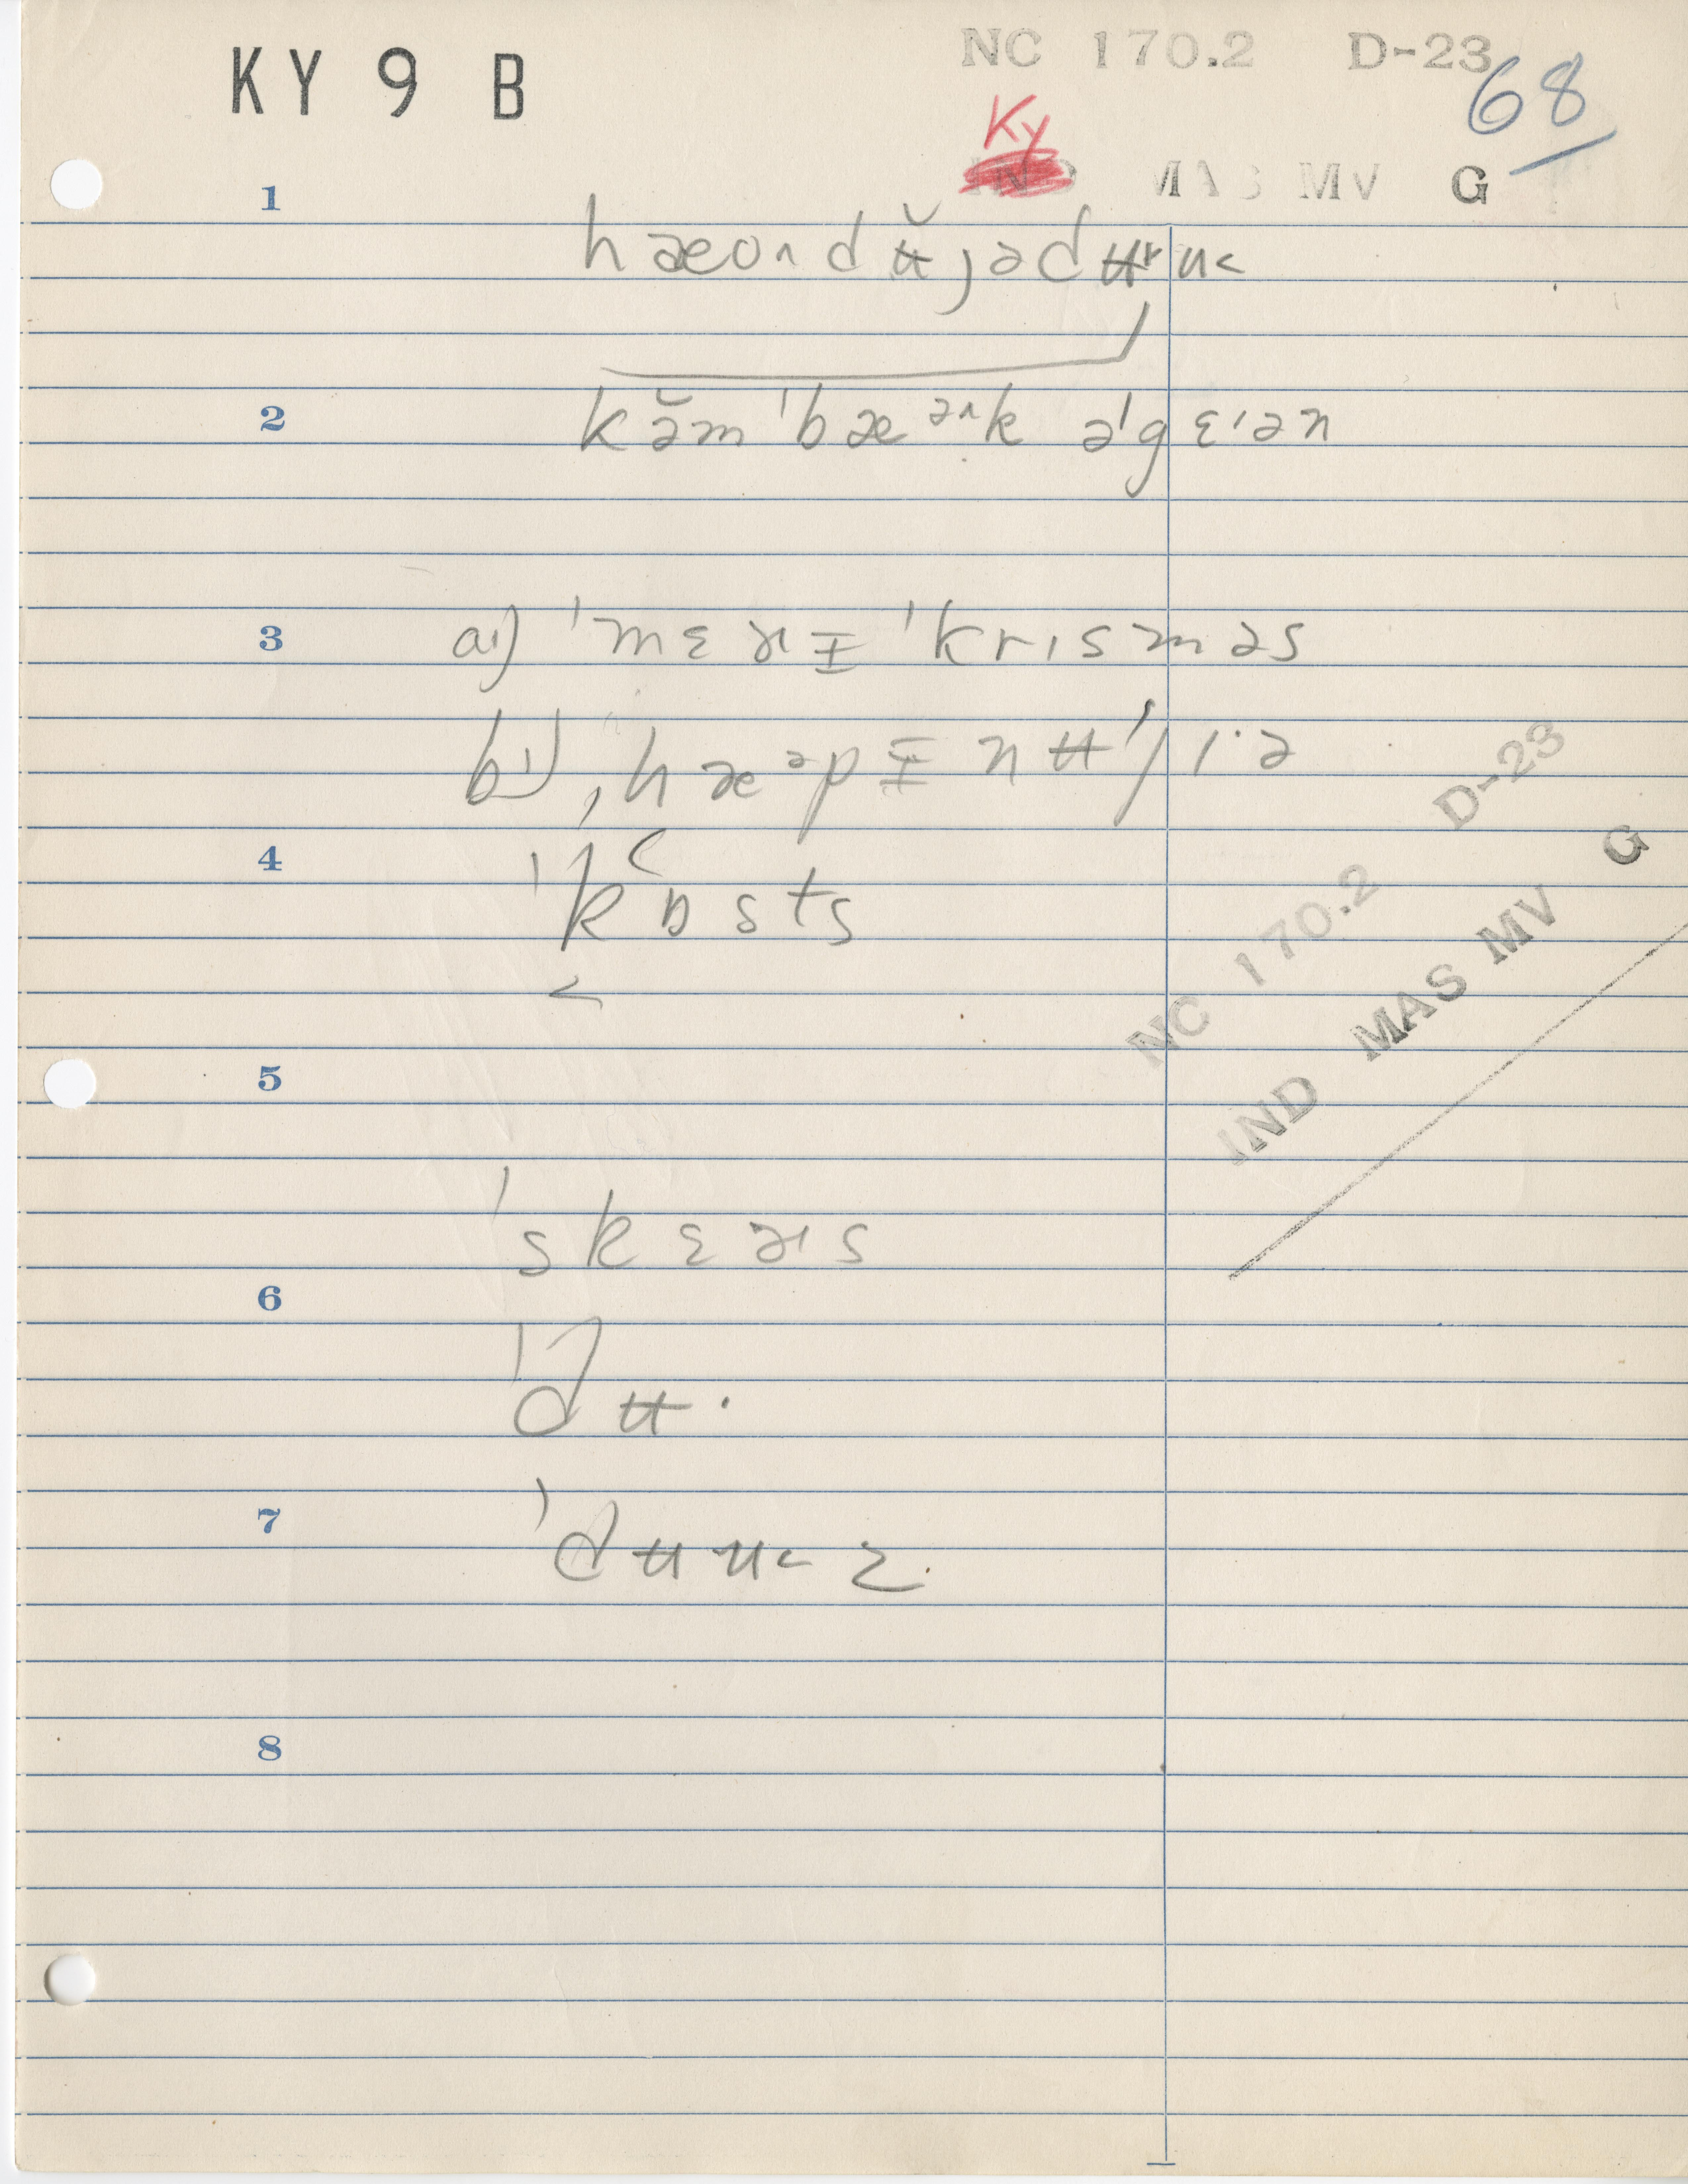 KY 9 B
NC 170.2 D-23
68
Ky
MAS MV G
1
hæoᴧdʉ̆jədʉɚʉ<
2
kə̆m ˈbæᵊᴧk əˈgɛɪən
3 a1) ˈmɛɚɪ̵ ˈkrɪsməs
b1) ˌhæᵊpɪ̵ nʉˈjɪ·ə
4
ˈkɒsts
5
ˈskɛɚs
6
ˈdʉ·
7 ˈdʉʉ<z
8
NC 170.2 D-23
IND MAS MV G